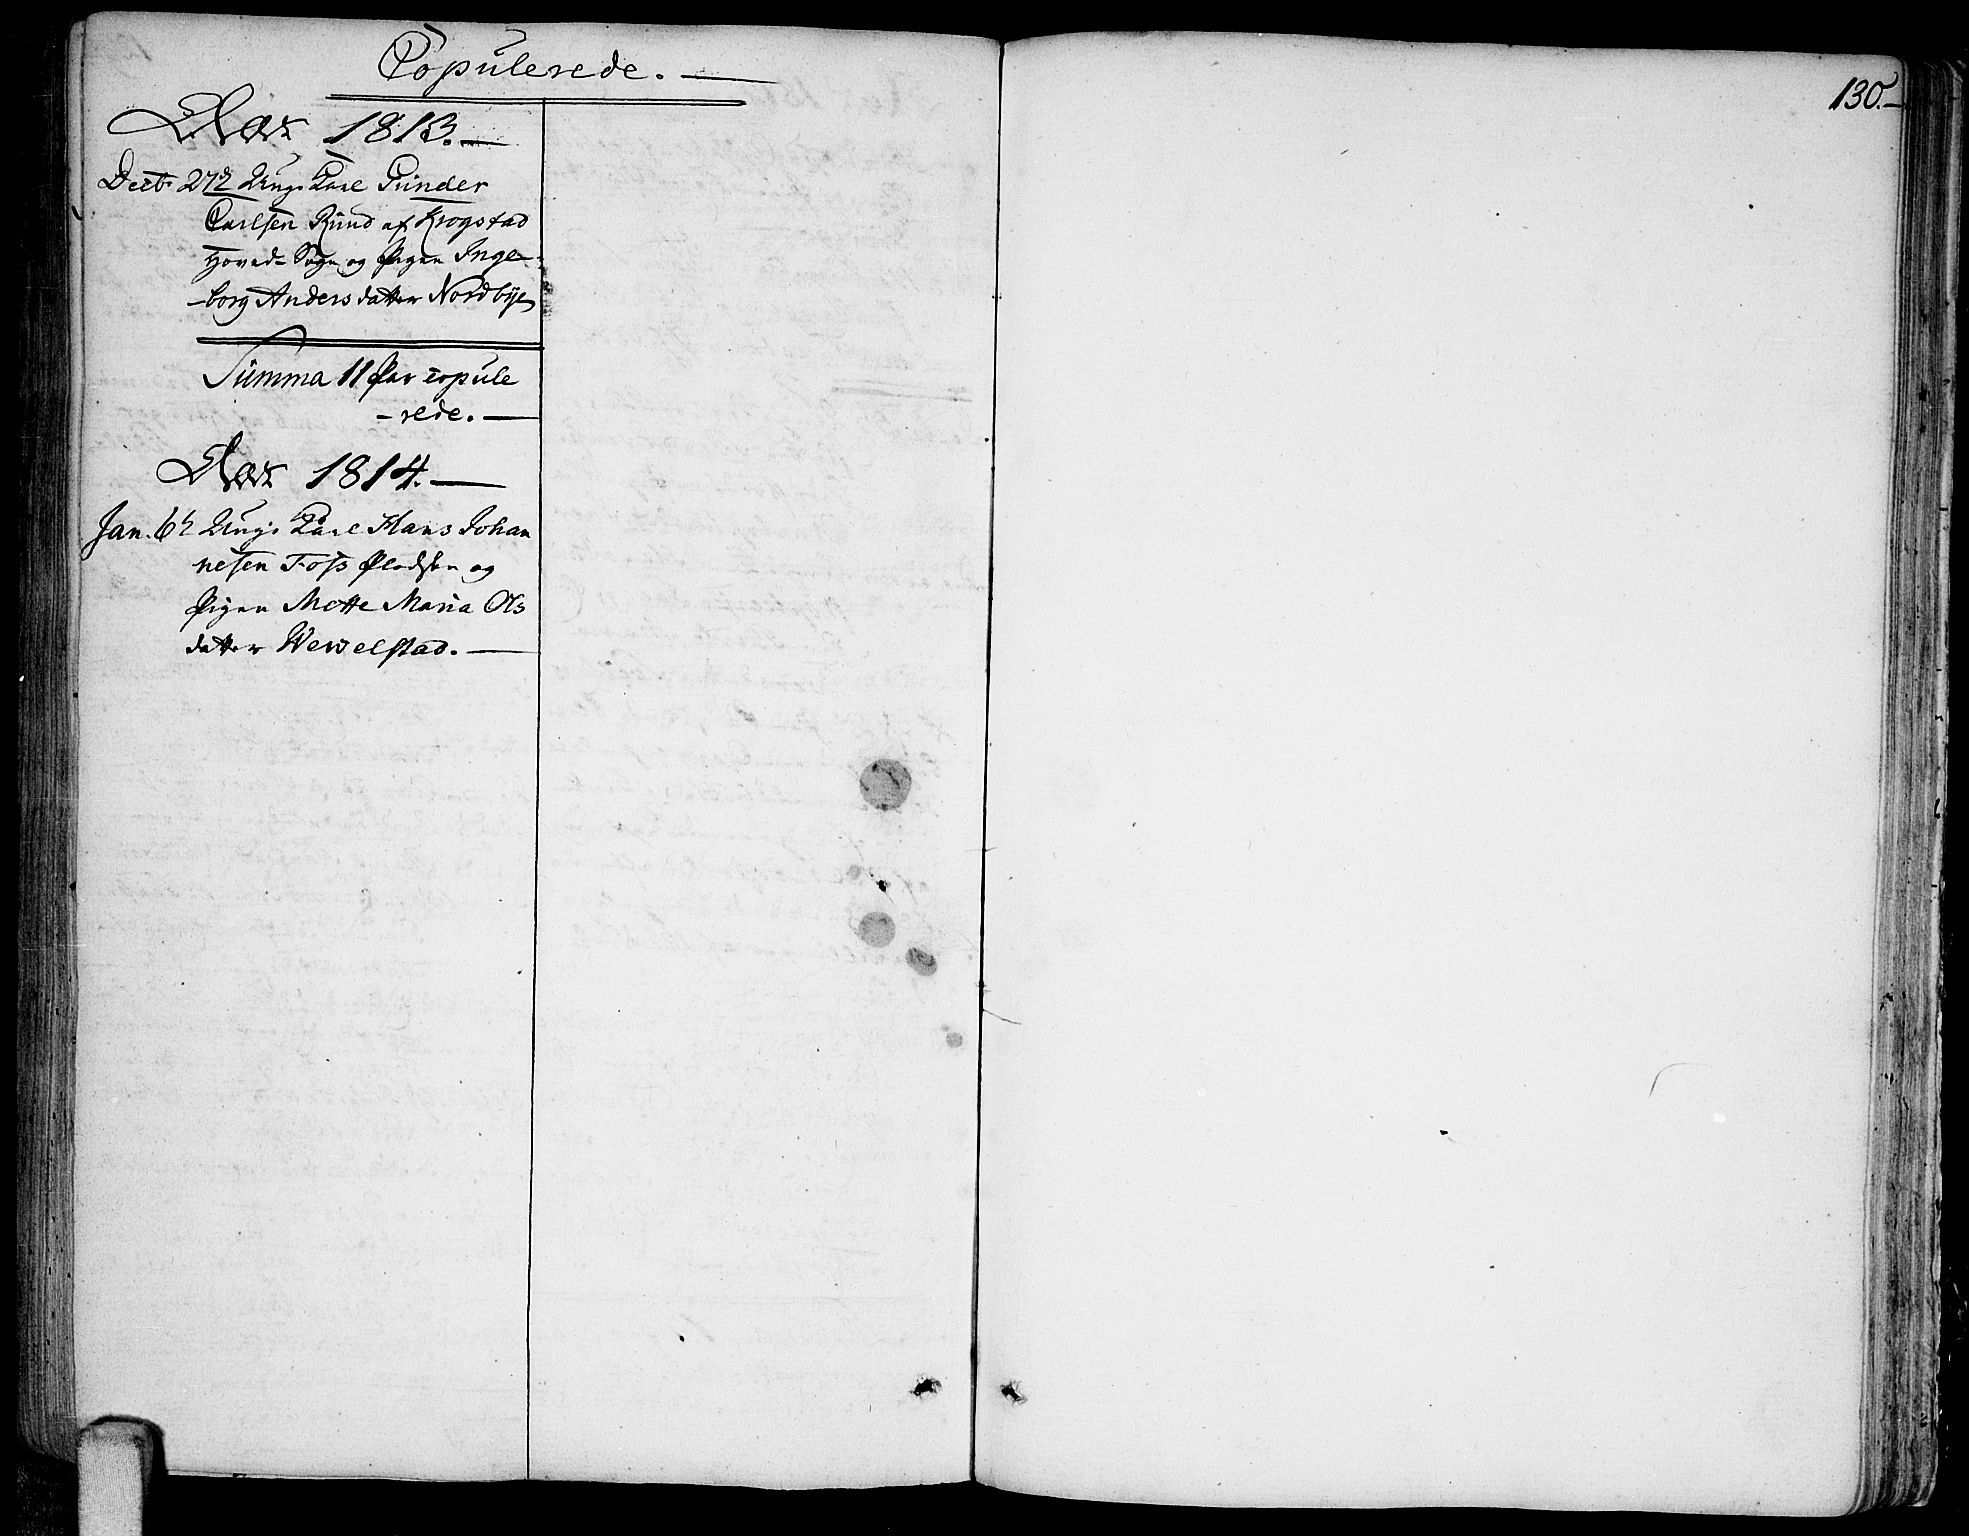 Copulerede. —
130. —
Aar 1813. —
Decb. 27de Ungk: Karl Gunder
Carlsen Rùnd af Krogstad
Hoved-Sogn og Pigen Inge-
-borg Andersdatter Nordbÿe
Summa 11 Par copule
-rede. —
Aar 1814. —
Jan. 6t Ungk: Karl Hans Johan
nesen Foss Pladsen og
Pigen Mette Maria Ols
datter Wewelstad. —